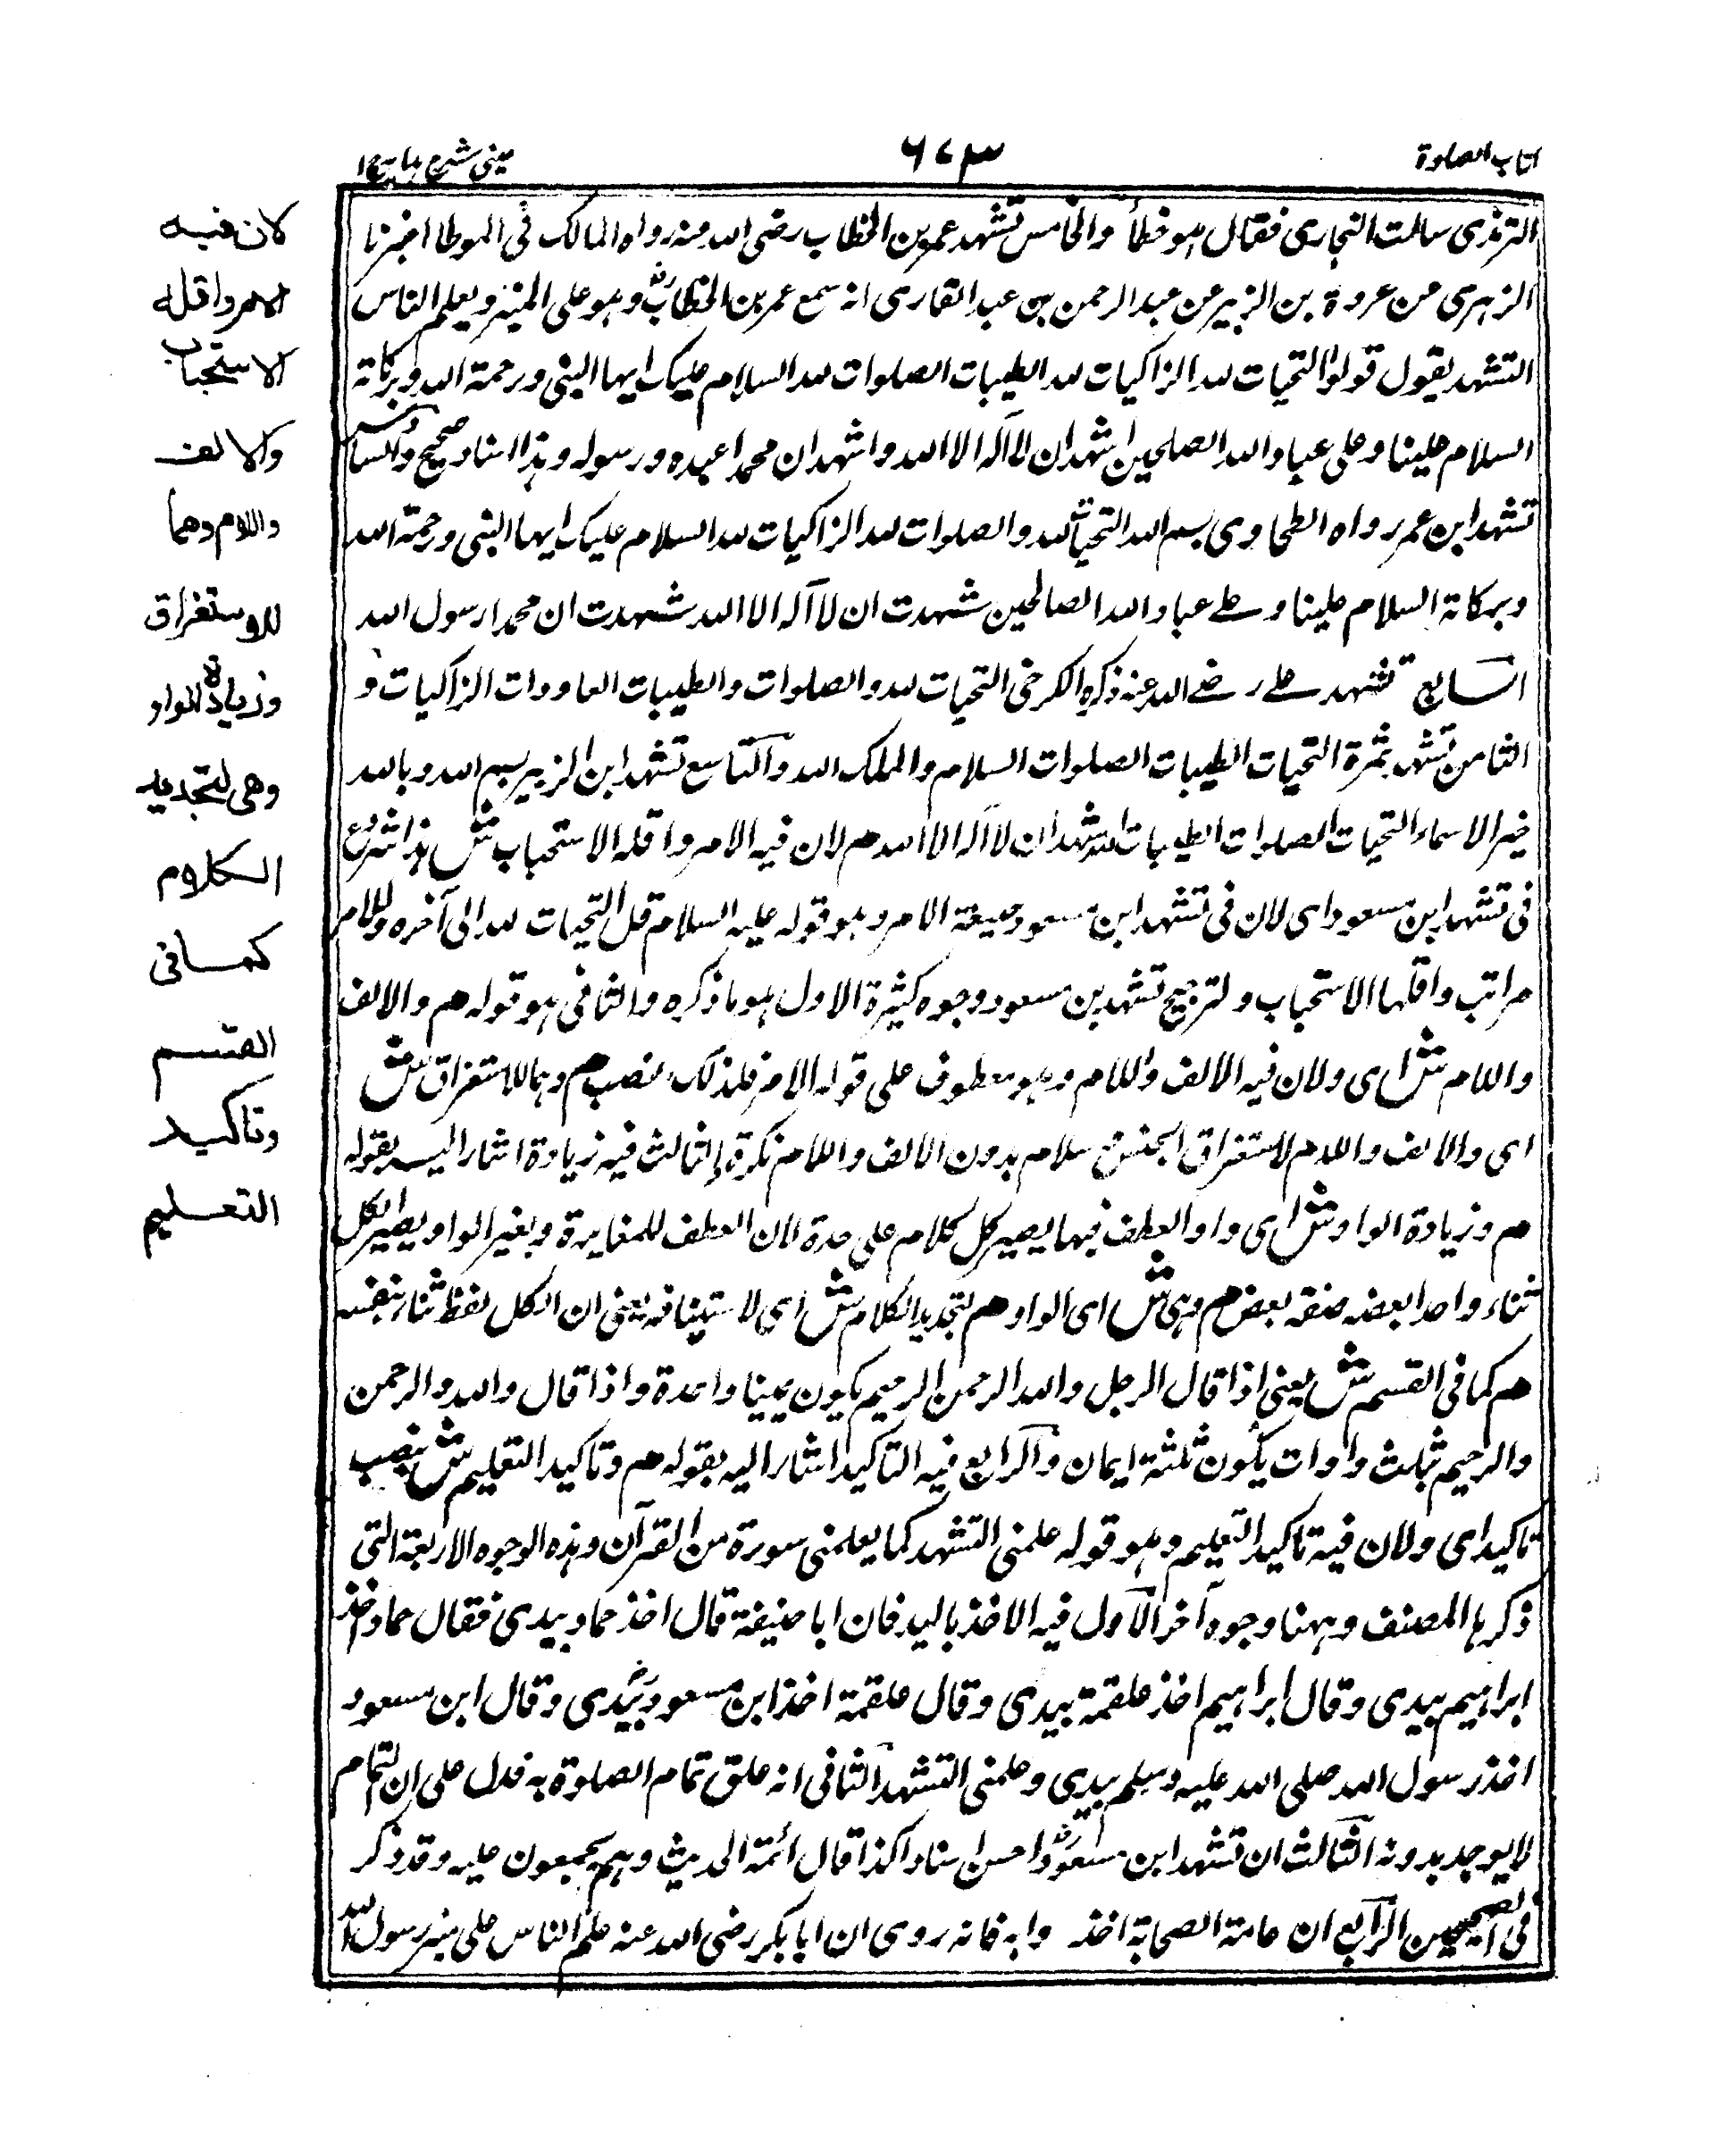 كتاب الصلوة
٦٧٣
عينى شرح هدايه ج١
الترمذى سالت البخارى فقال هو خطأ والخامس تشهد عمر بن الخطاب رضى الله عنه رواه المالك فى الموطا اخبرنا
الزهرى عن عروة بن الزبير عن عبد الرحمن بن عبد القارى انه سمع عمر بن الخطاب رض وهو على المنبر ويعلم الناس
التشهد يقول قولوا التحيات لله الزاكيات لله الطيبات الصلوات لله السلام عليك ايها النبى ورحمة الله وبركاته
السلام علينا وعلى عباد الله الصلحين اشهد ان لا آله الا الله واشهد ان محمدا عبده ورسوله وهذا اسناد صحيح والسادس
تشهد ابن عمر رواه الطحاوى بسم الله التحيات لله والصلوات لله الزاكيات لله السلام عليك ايها النبى ورحمة الله
وبركاته السلام علينا وعلى عباد الله الصالحين شهدت ان لا آله الا الله شهدت ان محمدا رسول الله
السابع تشهد على رضى الله عنه ذكره الكرخى التحيات لله والصلوات والطيبات الغاديات الزاكيات و
الثامن تشهد سمرة التحيات الطيبات الصلوات السلام والملك لله والتاسع تشهد ابن الزبير بسم الله وبالله
خير الاسماء التحيات الصلوات الطيبات لله اشهد ان لا آله الا الله م لان فيه الامر واقله الاستحباب ش هذا شروع
فى تشهد ابن مسعود اى لان فى تشهد ابن مسعود صيغة الامر وهو قوله عليه السلام قل التحيات لله الى آخره وللامر
مراتب واقلها الاستحباب ولترجيح تشهد بن مسعود وجوه كثيرة الاول هو ما ذكره والثانى هو قوله م والالف
واللام ش اى ولان فيه الالف واللام وهو معطوف على قوله الامر فلذلك نصب م وهما للاستغراق ش
اى والالف واللام لاستغراق الجنس مع سلام بدون الالف واللام نكرة الثالث فيه زيادة اشار اليه بقوله
م وزيادة الواو ش اى واو العطف فيها يصير كل كلام على حدة لان العطف للمغايرة وبغير الواو يصير الكل
ثناء واحدا بعضه صفة بعض م وهى ش اى الواو م لتجديد الكلام ش اى لاستينافه يعنى ان الكل لفظ ثناء بنفسه
م كما فى القسم ش يعنى اذا قال الرجل والله الرحمن الرحيم يكون يمينا واحدة واذا قال والله والرحمن
والرحيم بثلث واوات يكون ثلثة ايمان والرابع فيه التاكيد اشار اليه بقوله م وتاكيد التعليم ش بنصب
تاكيد اى ولان فيه تاكيد التعليم وهو قوله علمنى التشهد كما يعلمنى سورة من القرآن وهذه الوجوه الاربعة التى
ذكرها المصنف وههنا وجوه آخر الاول فيه الاخذ باليد فان ابا حنيفة قال اخذ حماد بيدى فقال حماد اخذ
ابراهيم بيدى وقال ابراهيم اخذ علقمة بيدى وقال علقمة اخذ ابن مسعود رض بيدى وقال ابن مسعود
اخذ رسول الله صلى الله عليه وسلم بيدى وعلمنى التشهد الثانى انه علق تمام الصلوة به فدل على ان التمام
لا يوجد بدونه الثالث ان تشهد ابن مسعود رض احسن اسنادا كذا قال ائمة الحديث وهم مجمعون عليه وقد ذكر
فى الصحيحين الرابع ان عامة الصحابة اخذ وابه فانه روى ان ابا بكر رضى الله عنه علم الناس على منبر رسول الله
كان فيه
الامر واقله
الاستحباب
والالف
واللام وهما
للاستغراق
وزيادة الواو
وهى لتجديد
الكلام
كما فى
القسم
وتاكيد
التعليم